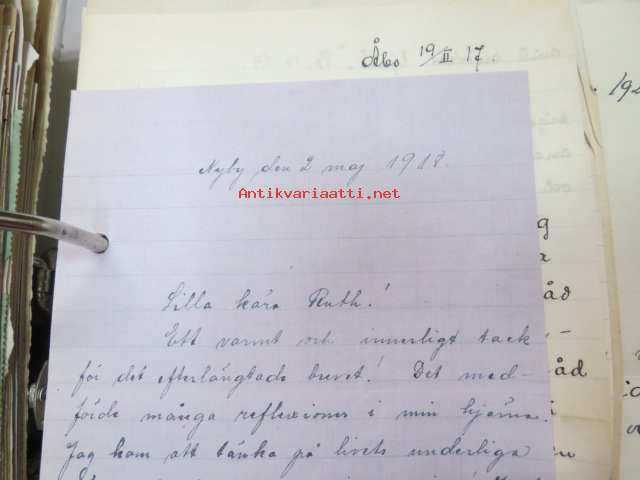 Åbo 19/II 17.
Nyby den 2 maj 1918.
Antikvariaatti.net
Lilla kära Ruth!
Ett varmt och innerligt tack
för det efterlängtade brevet! Det med-
förde många reflexioner i min hjärna.
Jag kom att tänka på livets underliga
åd
åd